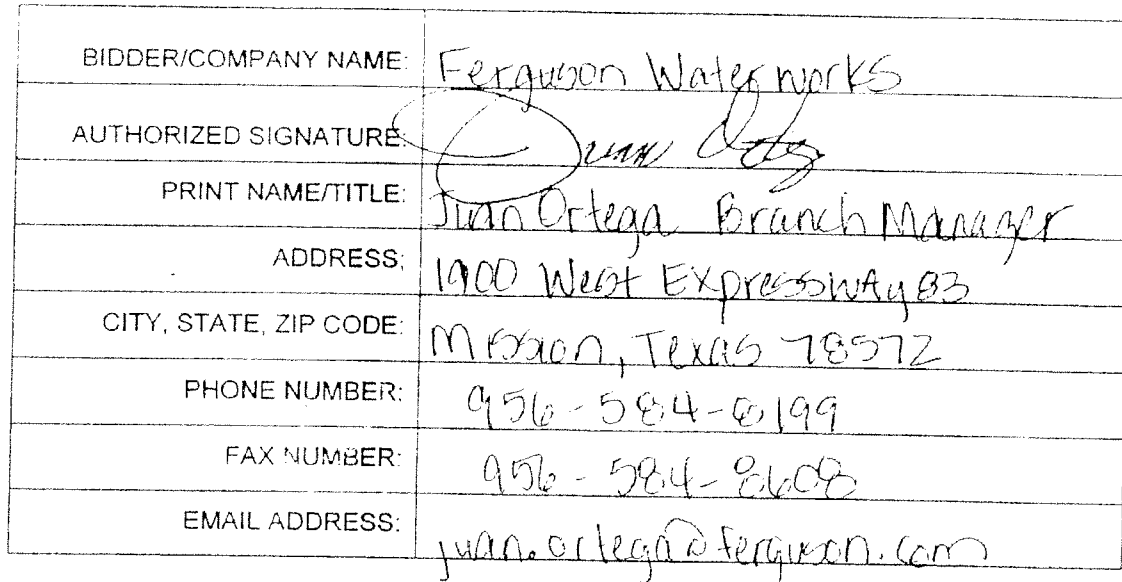 BIDDER/COMPANY NAME: Ferguson Waterworks
AUTHORIZED SIGNATURE: Juan
PRINT NAME/TITLE: Juan Ortega Branch Manager
ADDRESS: 1900 West Expressway 83
CITY, STATE, ZIP CODE: Mission, Texas 78572
PHONE NUMBER: 956-584-8199
FAX NUMBER: 956-584-8608
EMAIL ADDRESS: juan.ortega@ferguson.com